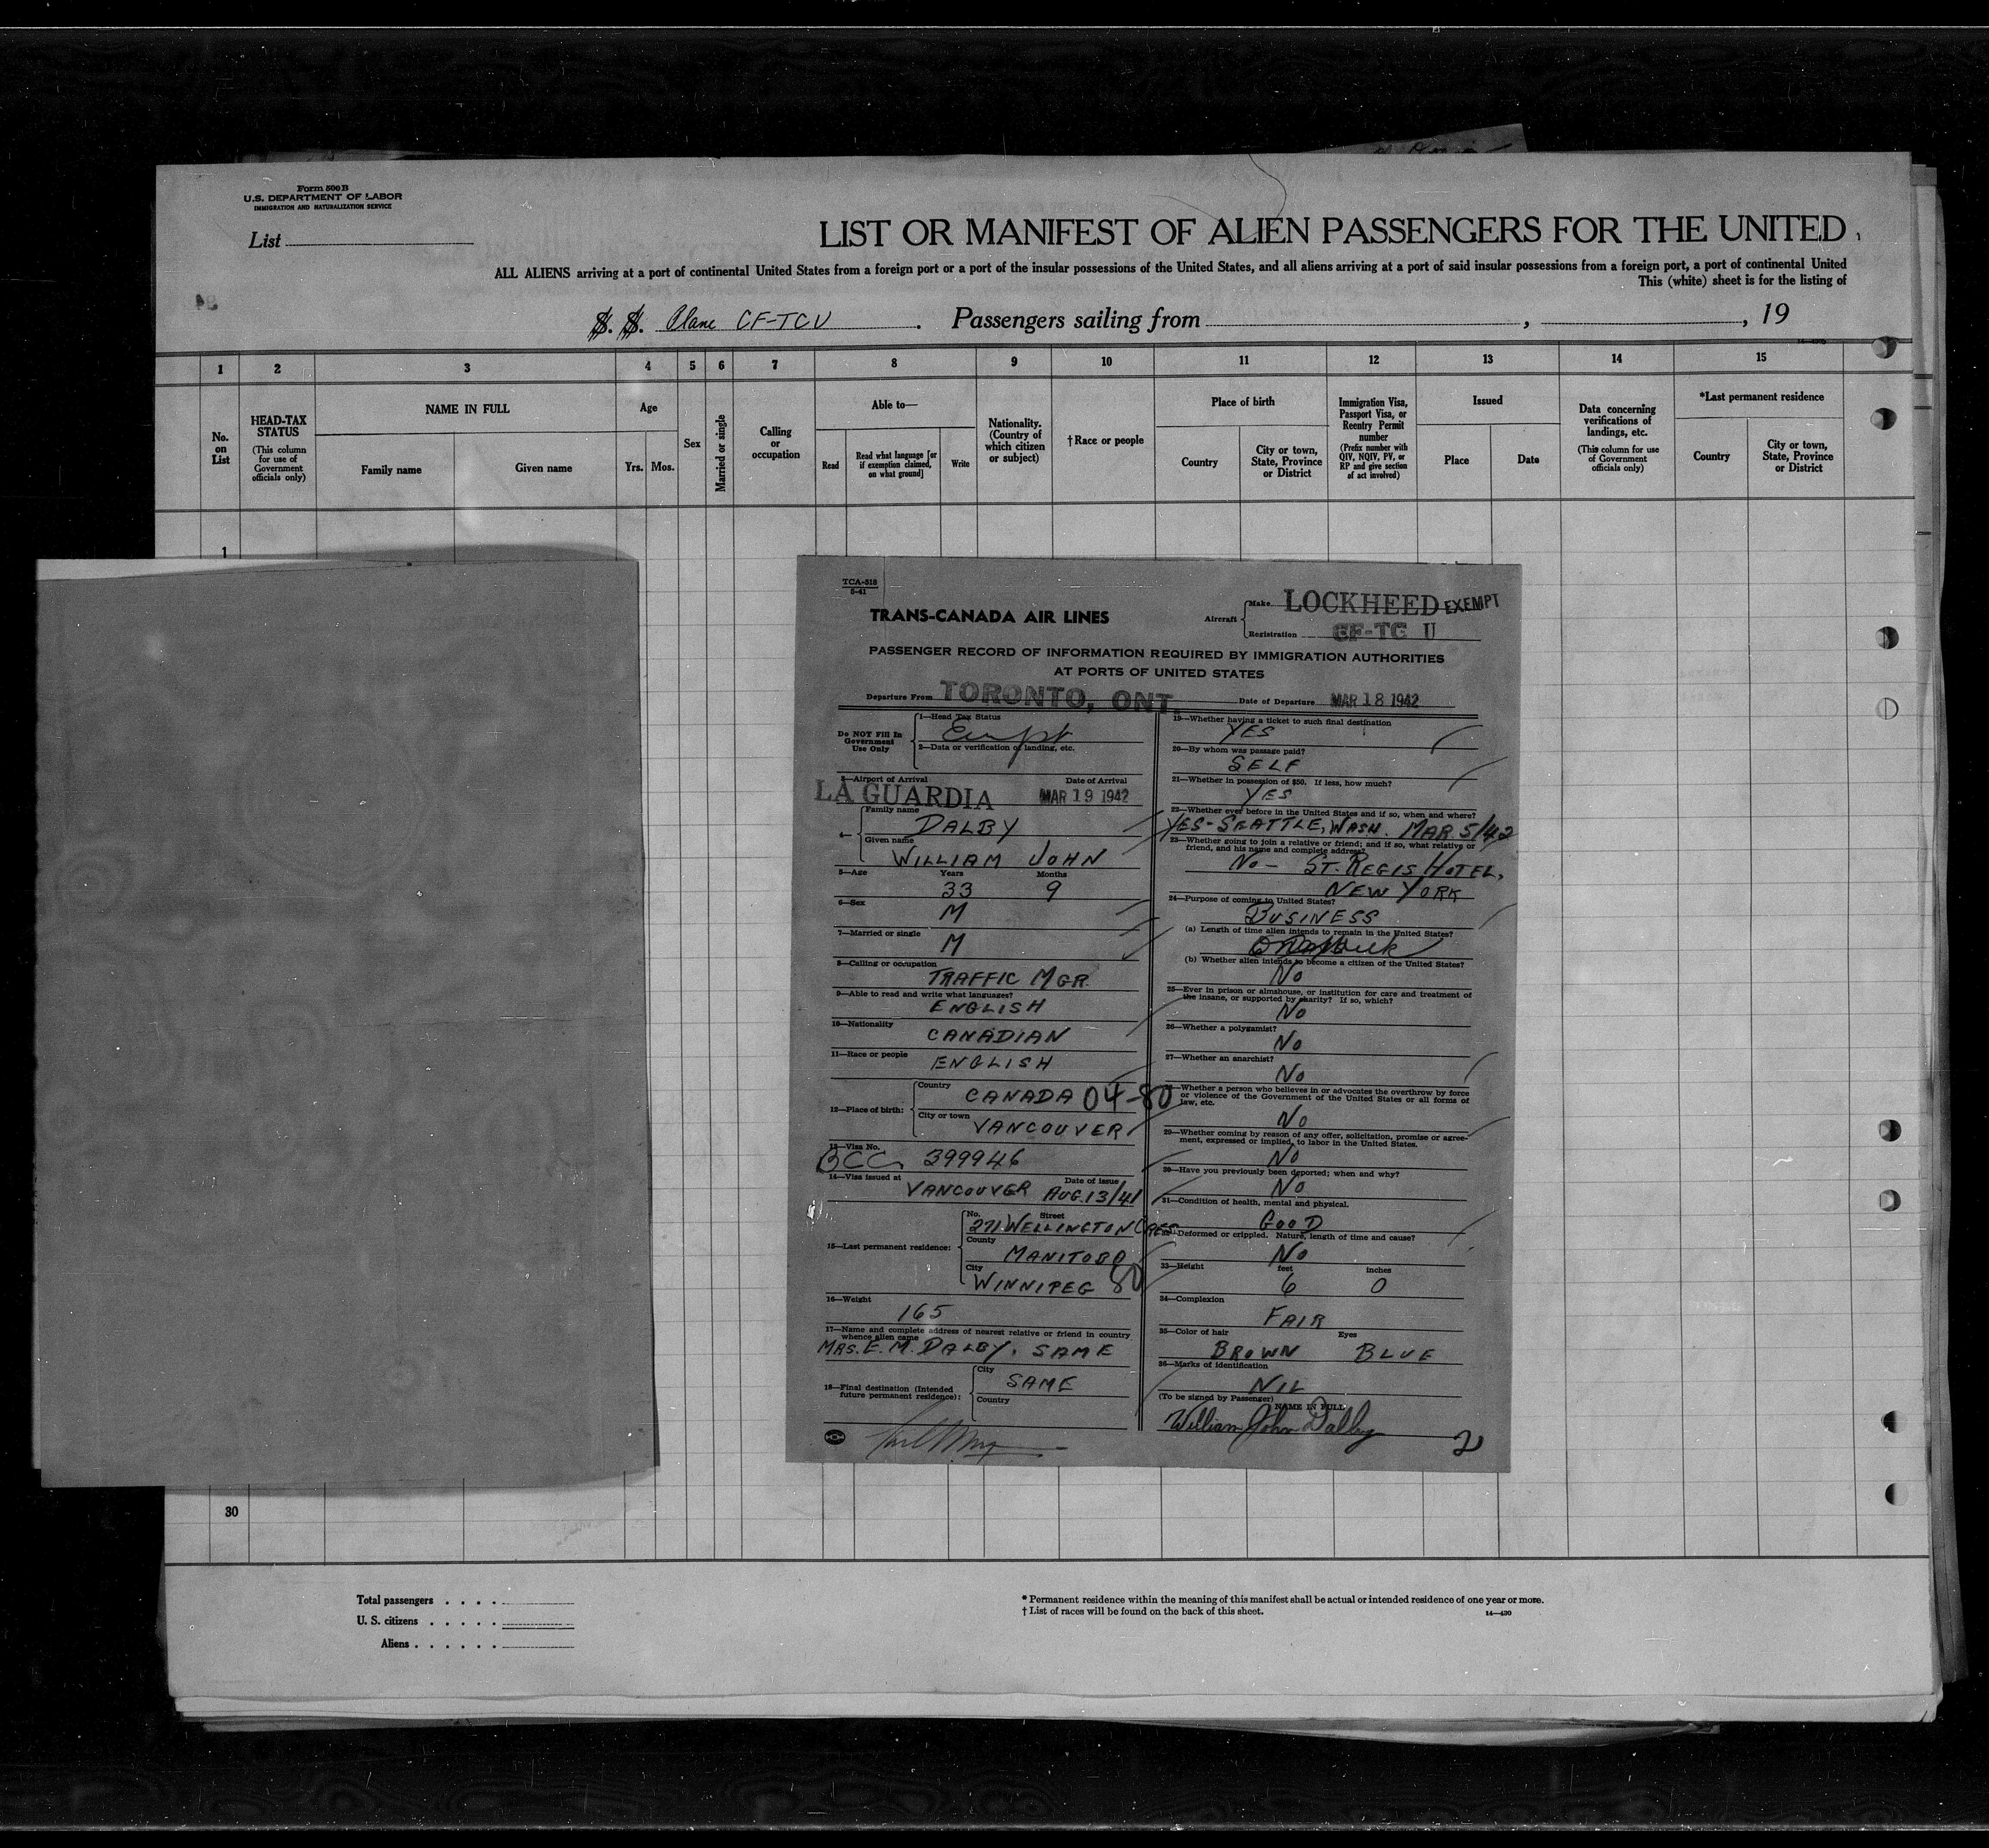 Form 500 B
U.S. DEPARTMENT OF LABOR
IMMIGRATION AND NATURALIZATION SERVICE
List
LIST OR MANIFEST OF ALIEN PASSENGERS FOR THE UNITED
ALL ALIENS arriving at a port of continental United States from a foreign port or a port of the insular possessions of the United States, and all aliens arriving at a port of said insular possessions from a foreign port, a port of continental United
This (white) sheet is for the listing of
S. S. Plane CF-TCU . Passengers sailing from , , 19
1 2 3 4 5 6 7 8 9 10 11 12 13 14 15
No. on List
HEAD-TAX STATUS
(This column for use of Government officials only)
NAME IN FULL
Family name Given name
Age
Yrs. Mos.
Sex
Married or single
Calling or occupation
Able to—
Read
Read what language [or if exemption claimed, on what ground]
Write
Nationality. (Country of which citizen or subject)
†Race or people
Place of birth
Country
City or town, State, Province or District
Immigration Visa, Passport Visa, or Reentry Permit number
(Prefix number with QIV, NQIV, PV, or RP and give section of act involved)
Issued
Place Date
Data concerning verifications of landings, etc.
(This column for use of Government officials only)
*Last permanent residence
Country
City or town, State, Province or District
1
TCA-518
5-41
TRANS-CANADA AIR LINES
Aircraft Make LOCKHEED EXEMPT
Registration CF-TC U
PASSENGER RECORD OF INFORMATION REQUIRED BY IMMIGRATION AUTHORITIES
AT PORTS OF UNITED STATES
Departure From TORONTO, ONT. Date of Departure MAR 18 1942
Do NOT Fill In Government Use Only
1—Head Tax Status
Exempt
2—Data or verification of landing, etc.
3—Airport of Arrival Date of Arrival
LA GUARDIA MAR 19 1942
4— Family name
DALBY
Given name
WILLIAM JOHN
5—Age Years Months
33 9
6—Sex
M
7—Married or single
M
8—Calling or occupation
TRAFFIC MGR.
9—Able to read and write what languages?
ENGLISH
10—Nationality
CANADIAN
11—Race or people
ENGLISH
12—Place of birth: Country
CANADA 04-80
City or town
VANCOUVER
13—Visa No.
BCC 399946
14—Visa issued at Date of issue
VANCOUVER AUG. 13/41
15—Last permanent residence: No. Street
271 WELLINGTON CRES.
County
MANITOBA
City
WINNIPEG 80
16—Weight
165
17—Name and complete address of nearest relative or friend in country
whence alien came
MRS. E. M. DALBY, SAME
18—Final destination (Intended future permanent residence): City
SAME
Country
19—Whether having a ticket to such final destination
YES
20—By whom was passage paid?
SELF
21—Whether in possession of $50. If less, how much?
YES
22—Whether ever before in the United States and if so, when and where?
YES-SEATTLE, WASH. MAR 5/42
23—Whether going to join a relative or friend; and if so, what relative or
friend, and his name and complete address?
NO - ST. REGIS HOTEL,
NEW YORK
24—Purpose of coming to United States?
BUSINESS
(a) Length of time alien intends to remain in the United States?
(b) Whether alien intends to become a citizen of the United States?
NO
25—Ever in prison or almshouse, or institution for care and treatment of
the insane, or supported by charity? If so, which?
NO
26—Whether a polygamist?
NO
27—Whether an anarchist?
NO
Whether a person who believes in or advocates the overthrow by force
or violence of the Government of the United States or all forms of
law, etc.
NO
29—Whether coming by reason of any offer, solicitation, promise or agree-
ment, expressed or implied, to labor in the United States.
NO
30—Have you previously been deported; when and why?
NO
31—Condition of health, mental and physical.
GOOD
Deformed or crippled. Nature, length of time and cause?
NO
33—Height feet inches
6 0
34—Complexion
FAIR
35—Color of hair Eyes
BROWN BLUE
36—Marks of identification
NIL
(To be signed by Passenger) NAME IN FULL
William John Dalby
2
30
Total passengers . . . .
U. S. citizens . . . . .
Aliens . . . . . .
* Permanent residence within the meaning of this manifest shall be actual or intended residence of one year or more.
† List of races will be found on the back of this sheet.
14—420